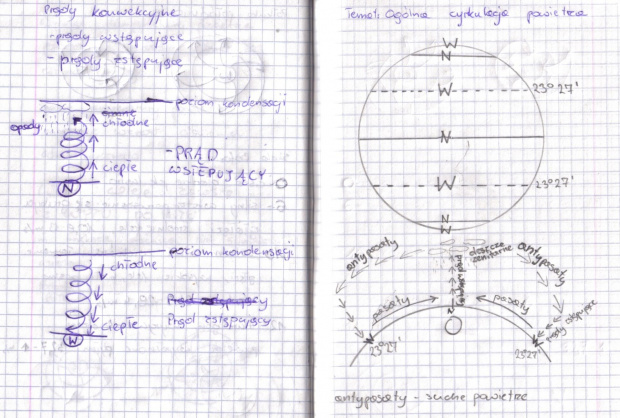 Prądy konwekcyjne
- prądy wstępujące
- prądy zstępujące
poziom kondensacji
opady
chłodne
ciepłe
N
- PRĄD
WSTĘPUJĄCY
poziom kondensacji
chłodne
ciepłe
W
Prąd zstępujący
Temat: Ogólna cyrkulacja powietrza
W
N
W
23°27'
N
W
23°27'
N
W
antypasaty
deszcze
zenitarne
antypasaty
pasaty
pasaty
prądy zstępujące
N
W
23°27'
W
23°27'
antypasaty - suche powietrze